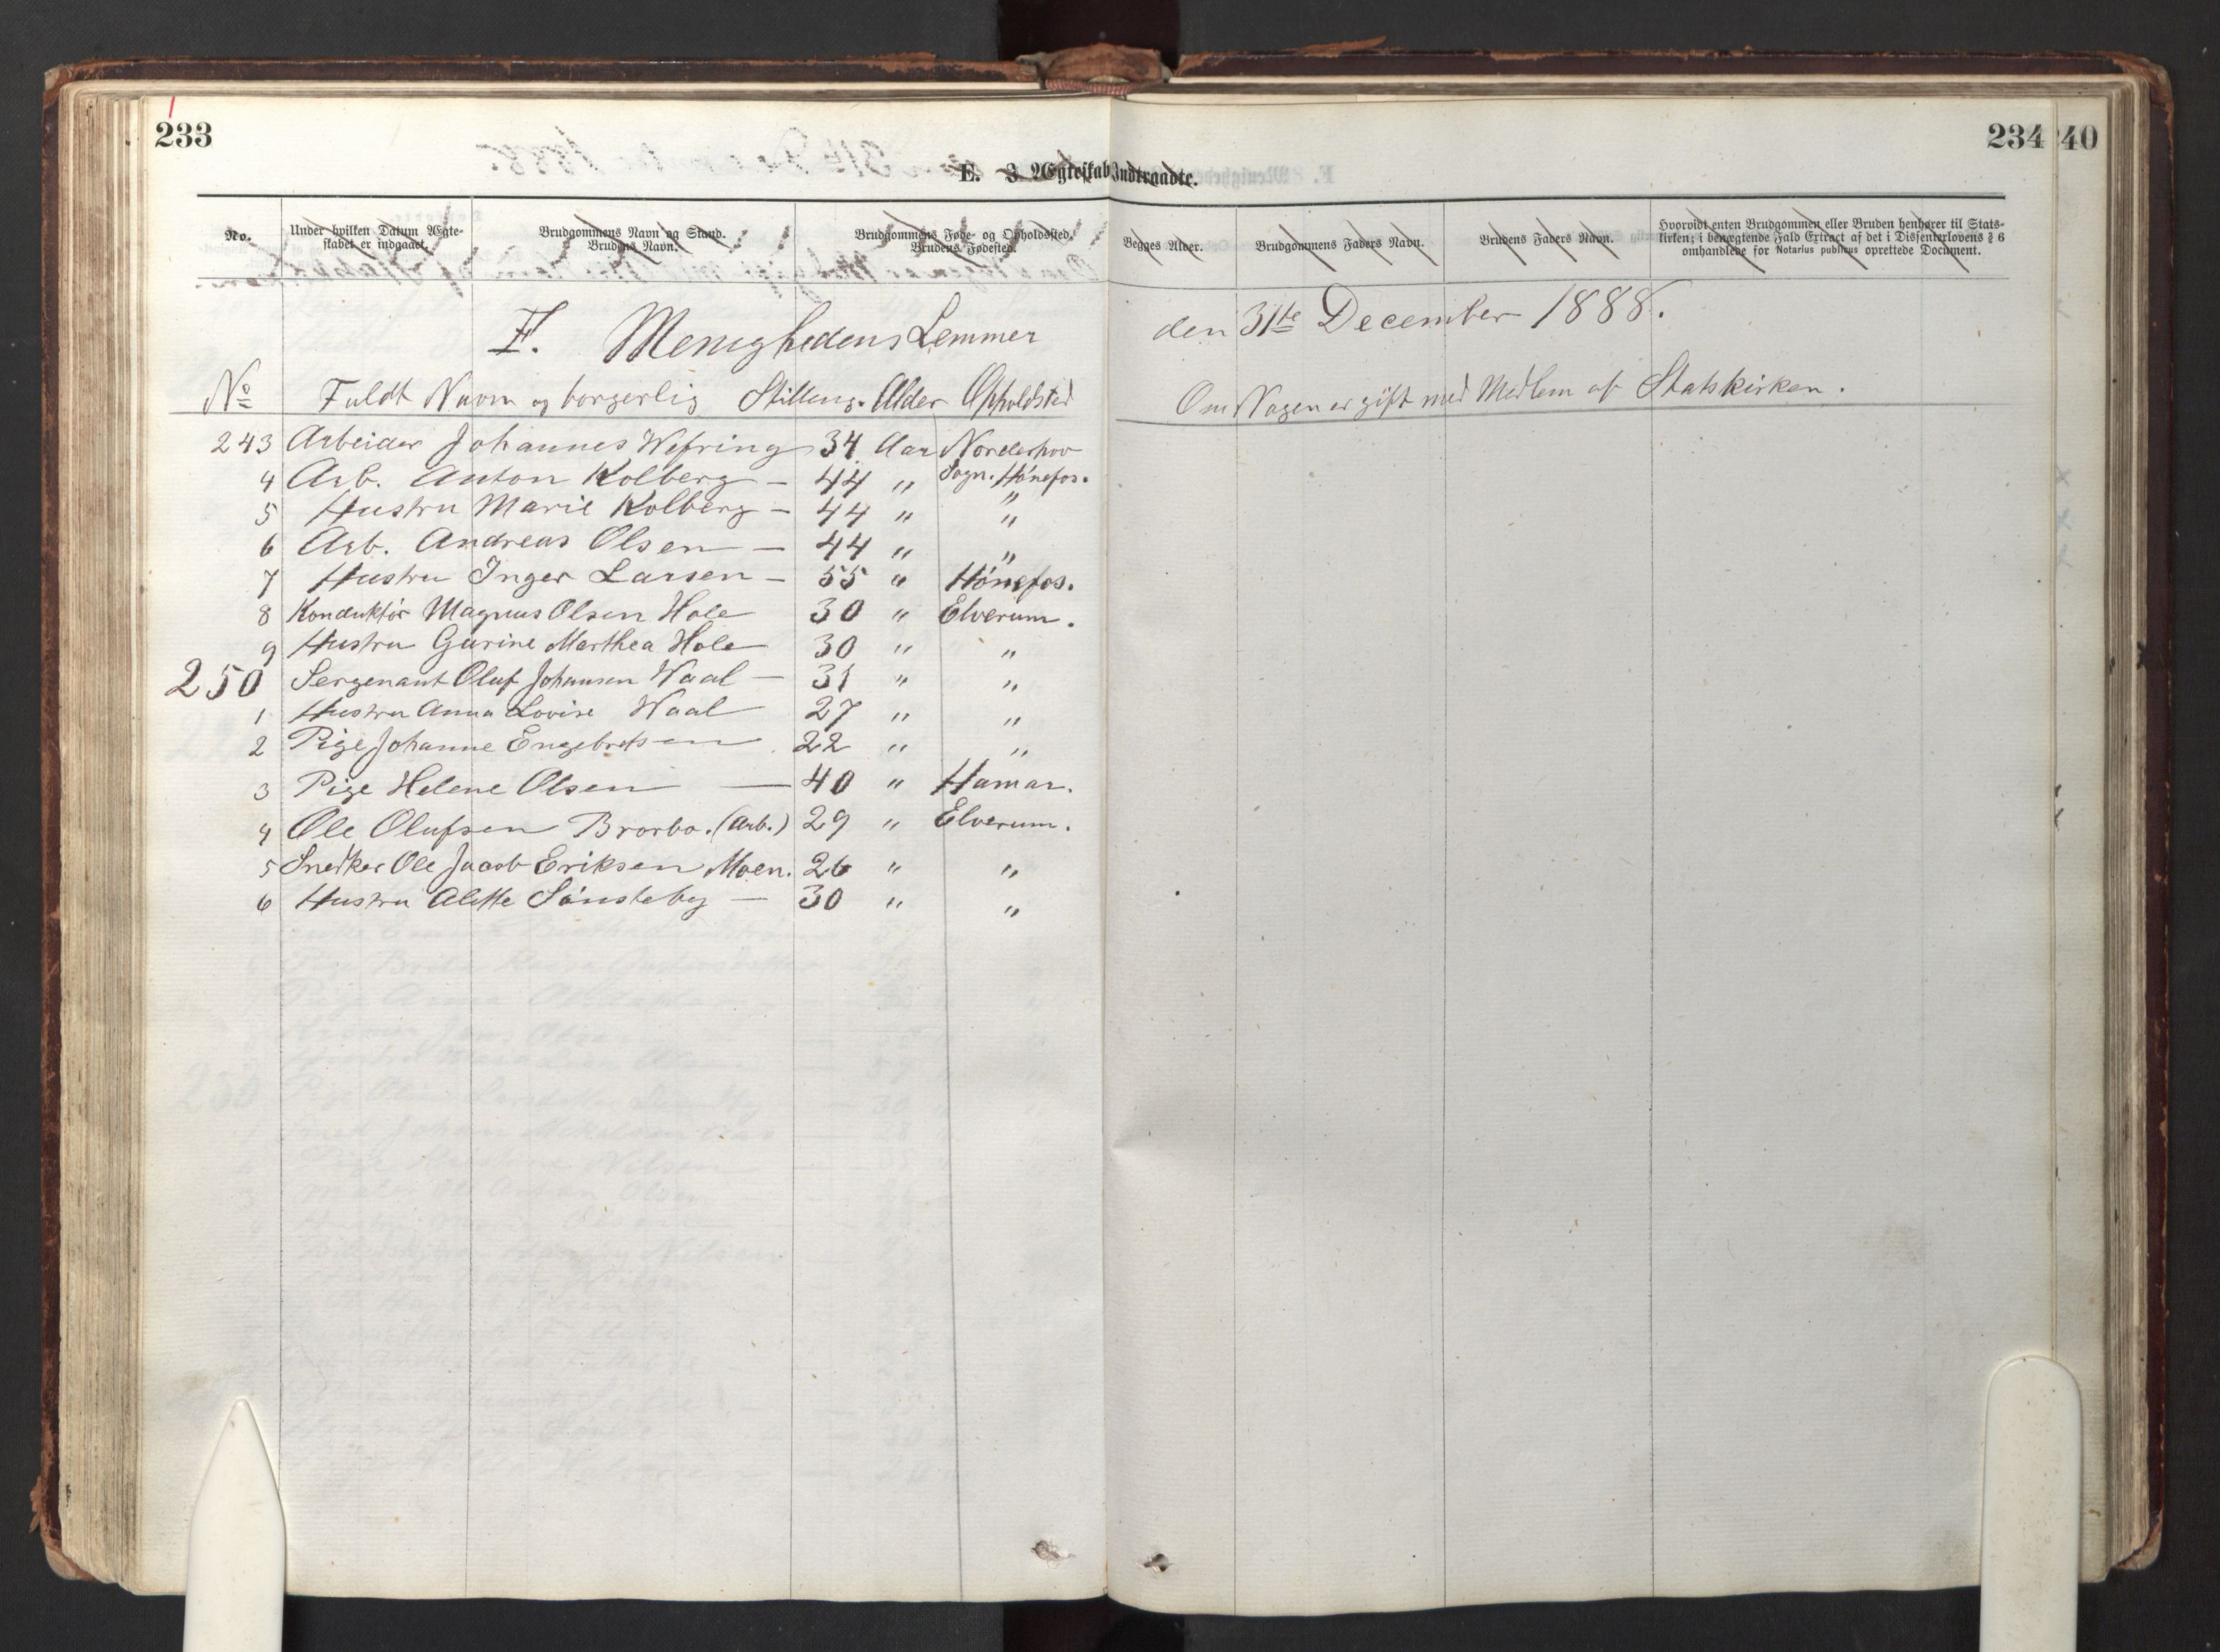 233
234
240
E. 3 Ægteskab Indtraadte.
No.
Under hvilken Datum Ægte-
skabet er indgaaet.
Brudgommens Navn og Stand.
Brudens Navn.
Brudgommens Føde- og Opholdssted.
Brudens Fødested.
Begges Alder.
Brudgommens Faders Navn.
Brudens Faders Navn.
Hvorvidt enten Brudgommen eller Bruden henhører til Stats-
kirken; i benægtende Fald Extract af det i Dissenterlovens § 6
omhandlede for Notarius publicus oprettede Document.
F. Menighedens Lemmer den 31te December 1888.
No Fuldt Navn og borgerlig Stilling. Alder Opholdsted Om Nogen er gift med Medlem af Statskirken.
243 Arbeider Johannes Wefring 34 Aar Norderhov
4 Arb. Anton Kolberg — 44 " Sogn. Hönefos.
5 Hustru Marie Kolberg — 44 " "
6 Arb. Andreas Olsen — 44 " "
7 Hustru Inger Larsen — 55 " Hönefos.
8 Konduktör Magnus Olsen Hole 30 " Elverum.
9 Hustru Gurine Marthea Hole 30 " "
250 Sergenant Oluf Johansen Waal — 31 " "
1 Hustru Anna Lovise Waal 27 " "
2 Pige Johanne Engebretsen 22 " "
3 Pige Helene Olsen — 40 " Hamar.
4 Ole Olufsen Brorbo. (Arb.) 29 " Elverum.
5 Snedker Ole Jacob Eriksen Moen. 26 " "
6 Hustru Alette Sönsteby — 30 " "